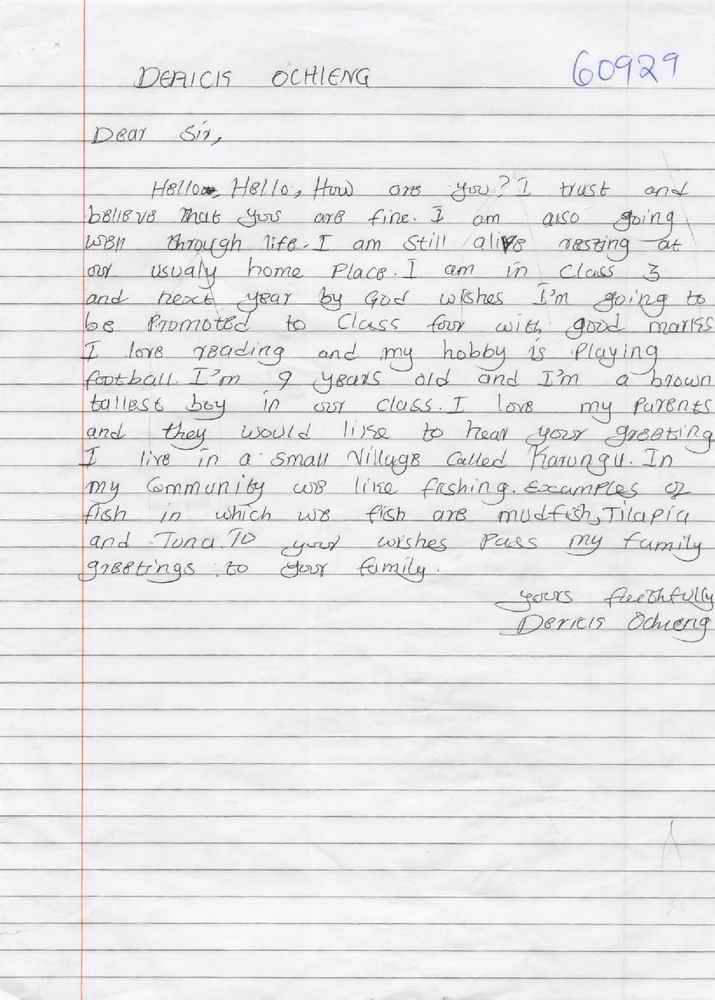 DERICK OCHIENG 60929
Dear Sir,
Hello, Hello, How are you? I trust and
believe that you are fine. I am also going
well through life. I am still alive resting at
our usualy home place. I am in class 3
and next year by God wishes I'm going to
be promoted to class four with good marks
I love reading and my hobby is playing
football. I'm 9 years old and I'm a brown
tallest boy in our class. I love my parents
and they would like to hear your greeting
I live in a small village called Karungu. In
my Community we like fishing. Examples of
fish in which we fish are mudfish, Tilapia
and Tuna. To your wishes pass my family
greetings to your family.
yours faithfully
Derick Ochieng